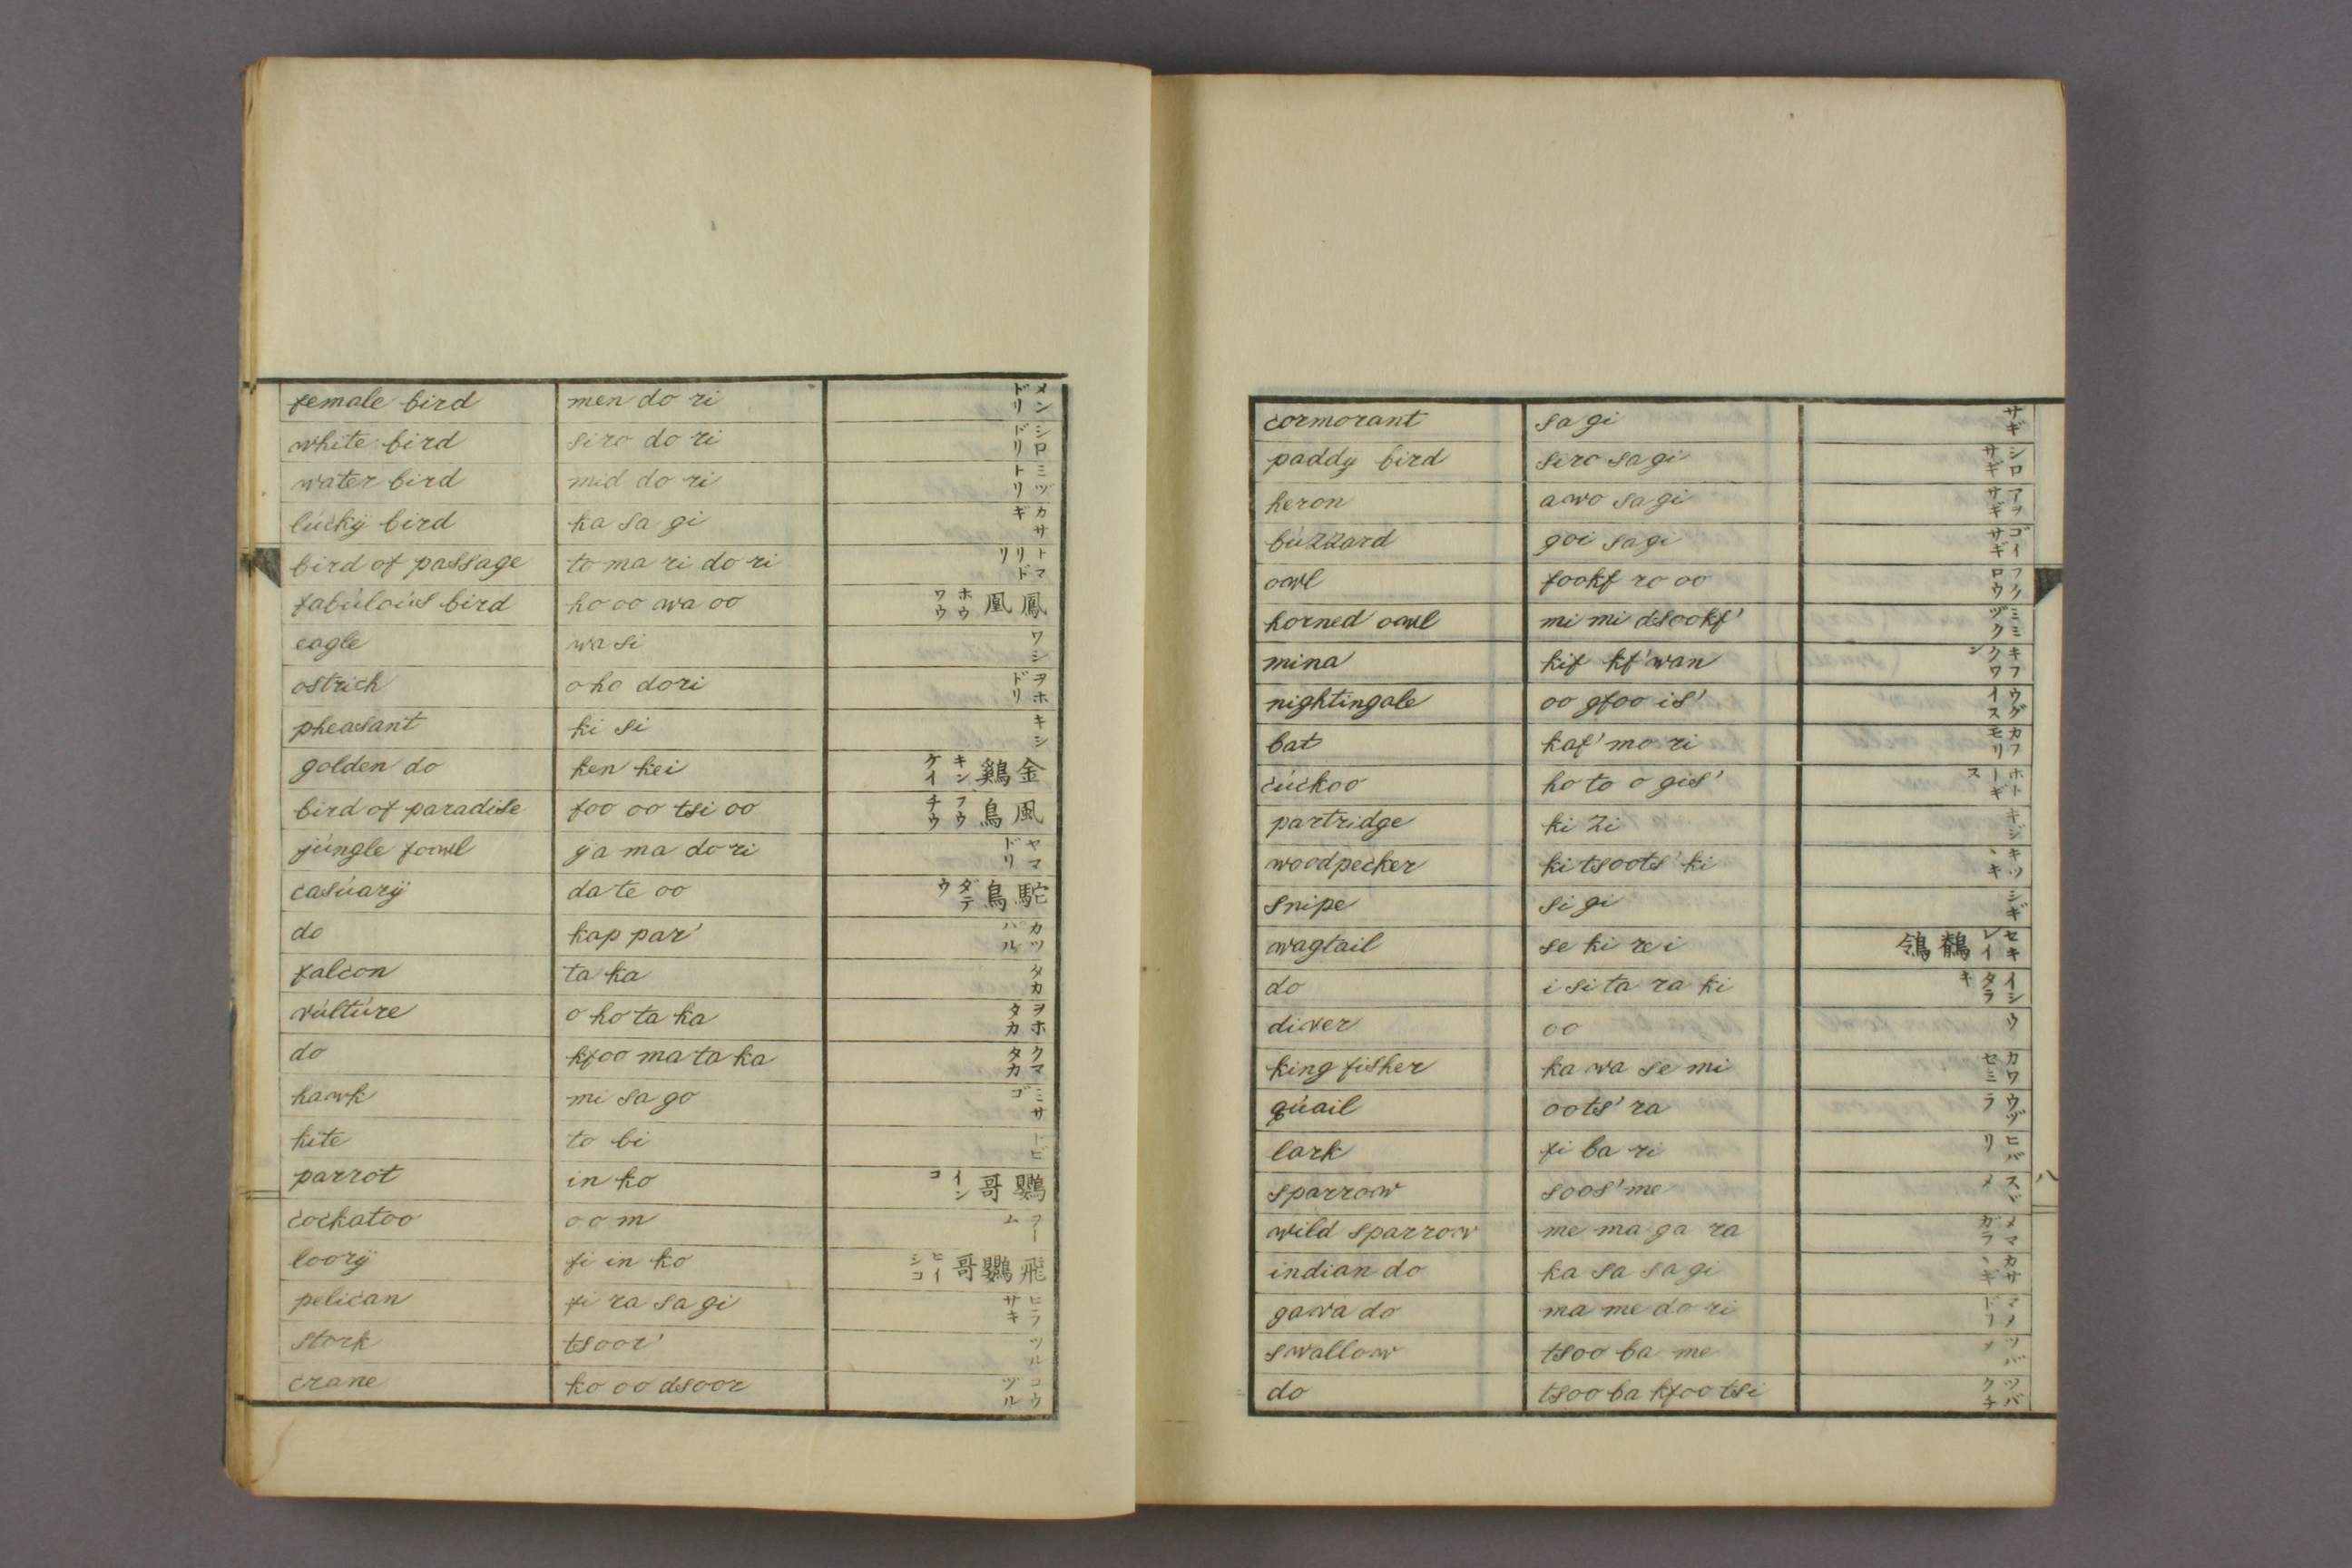 female bird men do ri メンドリ
white bird siro do ri シロドリ
water bird mid do ri ミヅトリ
lúcky bird ka sa gi カサギ
bird of passage to ma ri do ri トマリドリ
fabúloús bird ho oo wa oo 鳳凰 ホウワウ
eagle wa si ワシ
ostrich o ho dori ヲホドリ
pheasant ki si キシ
golden do ken kei 金鷄 キンケイ
bird of paradise foo oo tsi oo 風鳥 フウチウ
júngle fowl ÿa ma do ri ヤマドリ
casúarÿ da te oo 駝鳥 ダテウ
do kap par' カツパル
falcon ta ka タカ
vúltúre o ho ta ka ヲホタカ
do kfoo ma ta ka クマタカ
hawk mi sa go ミサゴ
kite to bi トビ
parrot in ko 鸚哥 インコ
cockatoo oo m ヲーム
loorÿ fi in ko 飛鸚哥 ヒインコ
pelican fi ra sa gi ヒラサキ
stork tsoor' ツル
crane ko oo dsoor コウヅル
cormorant sa gi サギ
paddy bird siro sa gi シロサギ
heron a wo sa gi アヲサギ
búzzard goi sa gi ゴイサギ
owl fookf ro oo フクロウ
horned owl mi mi dsookf' ミミヅク
mina kif kf'wan キフクワン
nightingale oo gfoo is' ウグイス
bat kaf' mo ri カフモリ
cúckoo ho to o gis' ホトトギス
partridge ki zi キジ
woodpecker ki tsoots' ki キツヽキ
snipe si gi シギ
wagtail se ki re i セキレイ 鶺鴒
do i si ta ra ki イシタラキ
diver oo ウ
king fisher ka wa se mi カワセミ
qúail oots' ra ウヅラ
lark fi ba ri ヒバリ
八
sparrow soos' me スヾメ
wild sparrow me ma ga ra メマガラ
indian do ka sa sa gi カサヽギ
gawa do ma me do ri マメドリ
swallow tsoo ba me ツバメ
do tsoo ba kfoo tsi ツバクチ